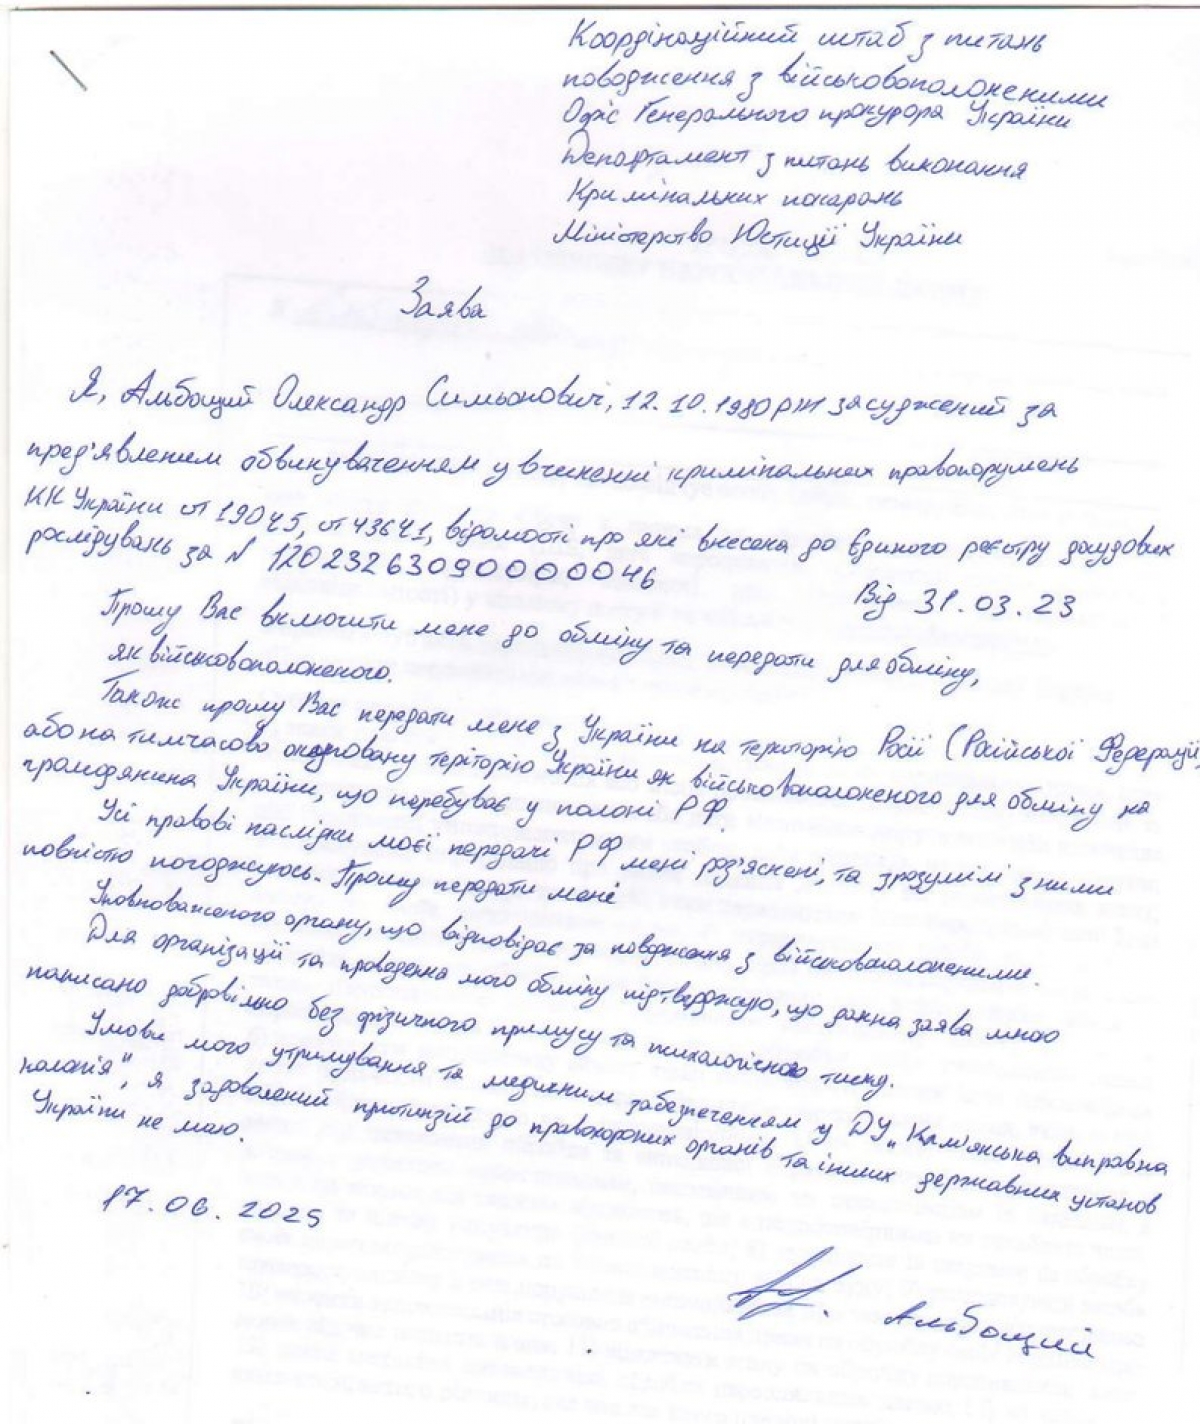 Координаційний штаб з питань
поводження з військовополоненими
Офіс Генерального прокурора України
Департамент з питань виконання
Кримінальних покарань
Міністерство Юстиції України
Заява
Я, Альбощий Олександр Симьонович, 12.10.1980 рн засуджений за
пред'явленим обвинуваченням у вчиненні кримінальних правопорушень
КК України ст 190ч5, ст 436ч1, відомості про які внесена до Єдиного реєстру досудових
розслідувань за № 12023263090000046 Від 31.03.23
Прошу Вас включити мене до обміну та передати для обміну,
як військовополоненого.
Також прошу Вас передати мене з України на територію Росії (Російської Федерації)
або на тимчасово окуповану теріторію України як військовополоненого для обміну на
громадянина України, що перебуває у полоні РФ.
Усі правові наслідки моєї передачі РФ мені роз'яснені, та зрозумілі з ними
повністю погоджуюсь. Прошу передати мене
Уповноваженого органу, що відповідає за поводження з військовополоненими.
Для організації та проведення мого обміну підтверджую, що данна заява мною
написано добровільно без фізичного примусу та психологічного тиску.
Умови мого утримування та медичним забезпеченням у ДУ „Кам'янська виправна
колонія", я задоволений притинзій до правохороних органів та інших державних установ
України не маю.
17.06.2025
Альбощий